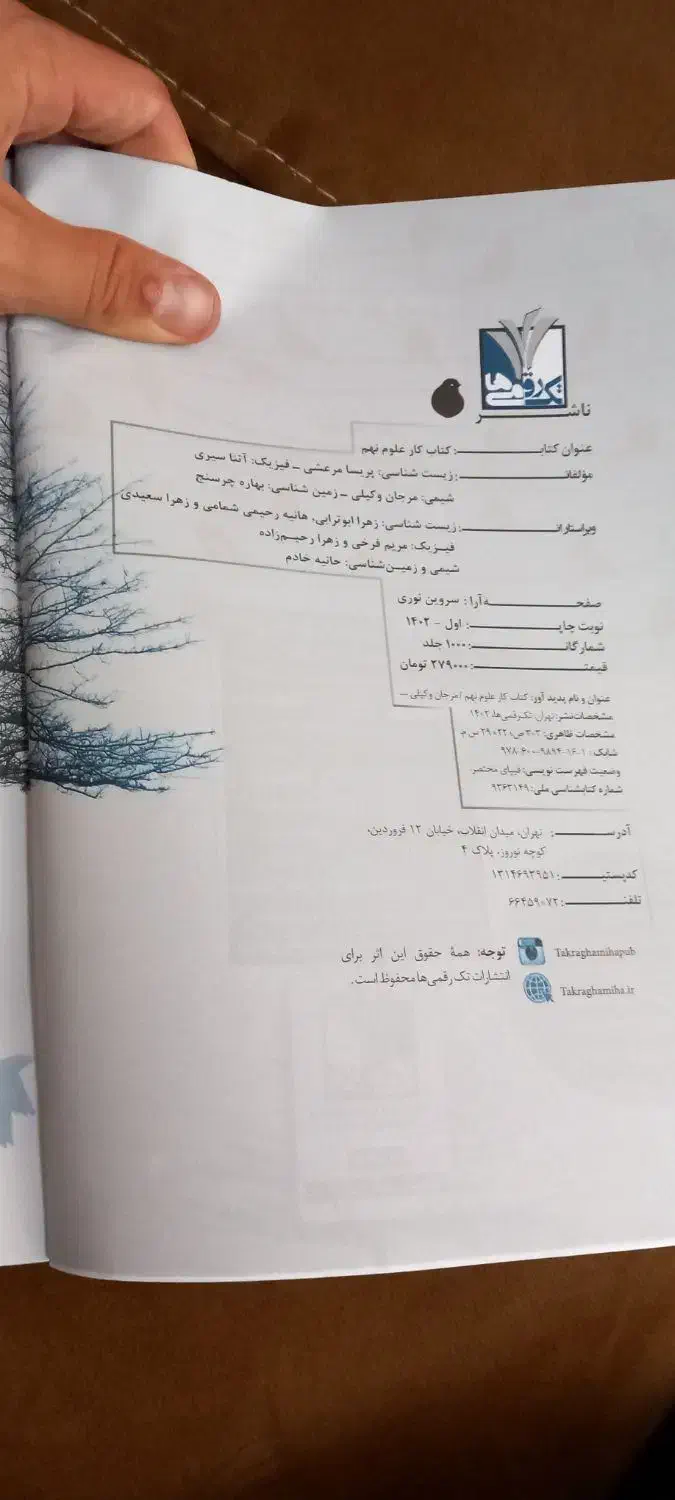 تک رقمی ها
ناشر
عنوان کتاب: کتاب کار علوم نهم
مؤلفان: زیست شناسی: پریسا مرعشی - فیزیک: آتنا سیری
شیمی: مرجان وکیلی - زمین شناسی: بهاره چرسنج
ویراستاران: زیست شناسی: زهرا ابوترابی، هانیه رحیمی شمامی و زهرا سعیدی
فیزیک: مریم فرخی و زهرا رحیم‌زاده
شیمی و زمین‌شناسی: حانیه خادم
صفحه آرا: سروین نوری
نوبت چاپ: اول - ۱۴۰۲
شمارگان: ۱۰۰۰ جلد
قیمت: ۲۷۹۰۰۰ تومان
عنوان و نام پدید آور: کتاب کار علوم نهم / مرجان وکیلی ...
مشخصات نشر: تهران: تک‌رقمی‌ها، ۱۴۰۲
مشخصات ظاهری: ۳۰۳ ص؛ ۲۲×۲۹ س م.
شابک: ۱-۱۶-۹۸۹۴-۶۰۰-۹۷۸
وضعیت فهرست نویسی: فیپای مختصر
شماره کتابشناسی ملی: ۹۳۶۳۱۴۹
آدرس: تهران، میدان انقلاب، خیابان ۱۲ فروردین،
کوچه نوروز، پلاک ۴
کدپستی: ۱۳۱۴۶۹۳۹۵۱
تلفن: ۶۶۴۵۹۰۷۲
Takraghamihapub
Takraghamiha.ir
توجه: همهٔ حقوق این اثر برای
انتشارات تک رقمی‌ها محفوظ است.